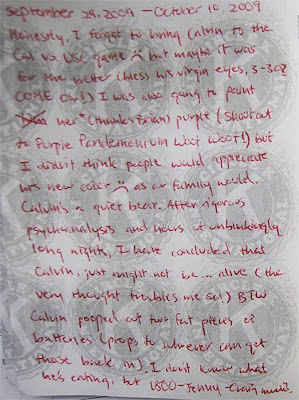 September 29, 2009 - October 10, 2009
Honestly, I forgot to bring Calvin to the
Cal vs. USC game :( but maybe it was
for the better (bless his virgin eyes, 3-30?
COME ON!) I was also going to paint
her (thanks Brian) purple (Shout out
to Purple Pandemonium woot woot!) but
I didn't think people would appreciate
his new color :( as our family would.
Calvin's a quiet bear. After rigorous
psychoanalysis and hours of unblinkingly
long nights, I have concluded that
Calvin, just might not be... alive (the
very thought troubles me so!) BTW
Calvin pooped out two fat pieces of
batteries (props to whoever can get
those back in). I don't know what
he's eating, but